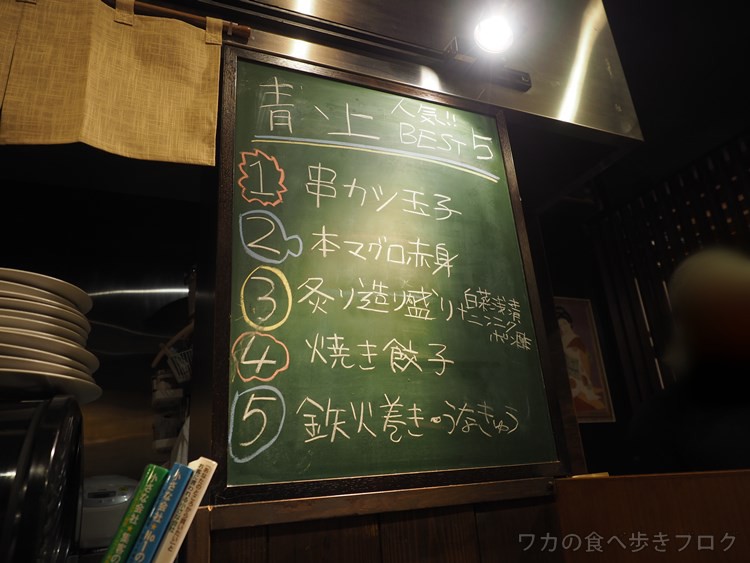 青い上 人気!! BEST 5
1 串カツ玉子
2 本マグロ赤身
3 炙り造り盛り
白菜浅漬
ニンニク
ポン酢
4 焼き餃子
5 鉄火巻き・うなきゅう
小さな会社・
小さな会社・
ワカの食べ歩きブログ